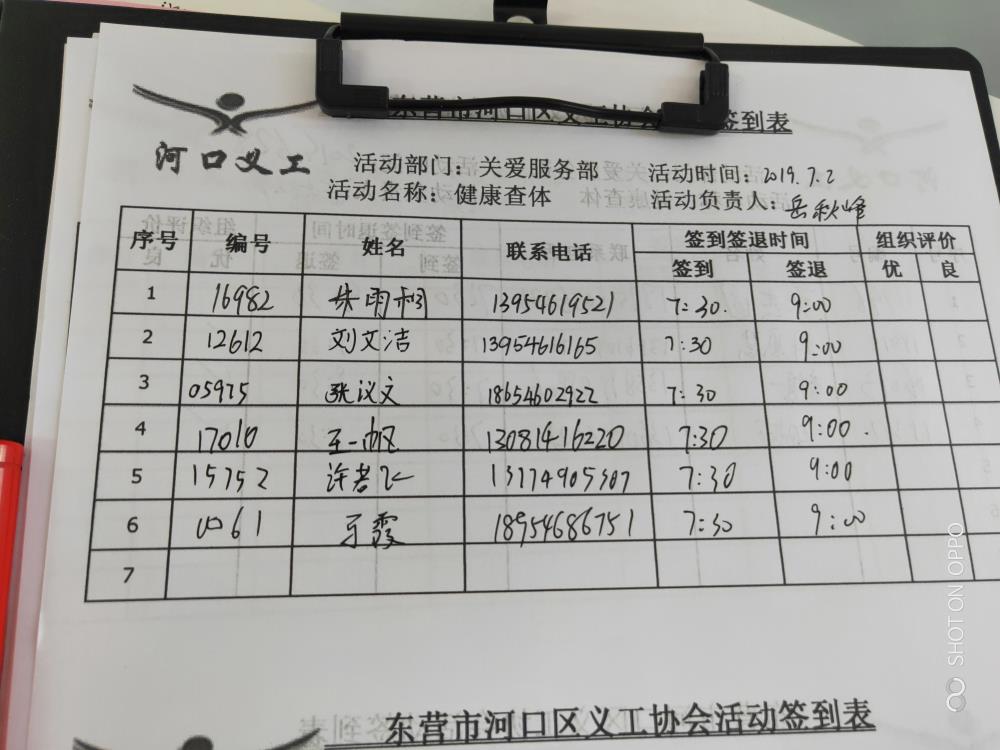 东营市河口区义工协会 签到表
河口义工
活动部门：关爱服务部 活动时间：2019.7.2
活动名称：健康查体 活动负责人：岳秋峰
序号 编号 姓名 联系电话 签到签退时间 组织评价
签到 签退 优 良
1 16982 朱雨桐 13954619521 7:30. 9:00
2 12612 刘文洁 13954616165 7:30 9:00
3 05975 张议文 18654602922 7:30 9:00
4 17010 王一帆 13081416220 7:30 9:00.
5 15752 许若飞 13174905307 7:30 9:00
6 0061 于霞 18954686751 7:30 9:00
7
东营市河口区义工协会活动签到表
SHOT ON OPPO